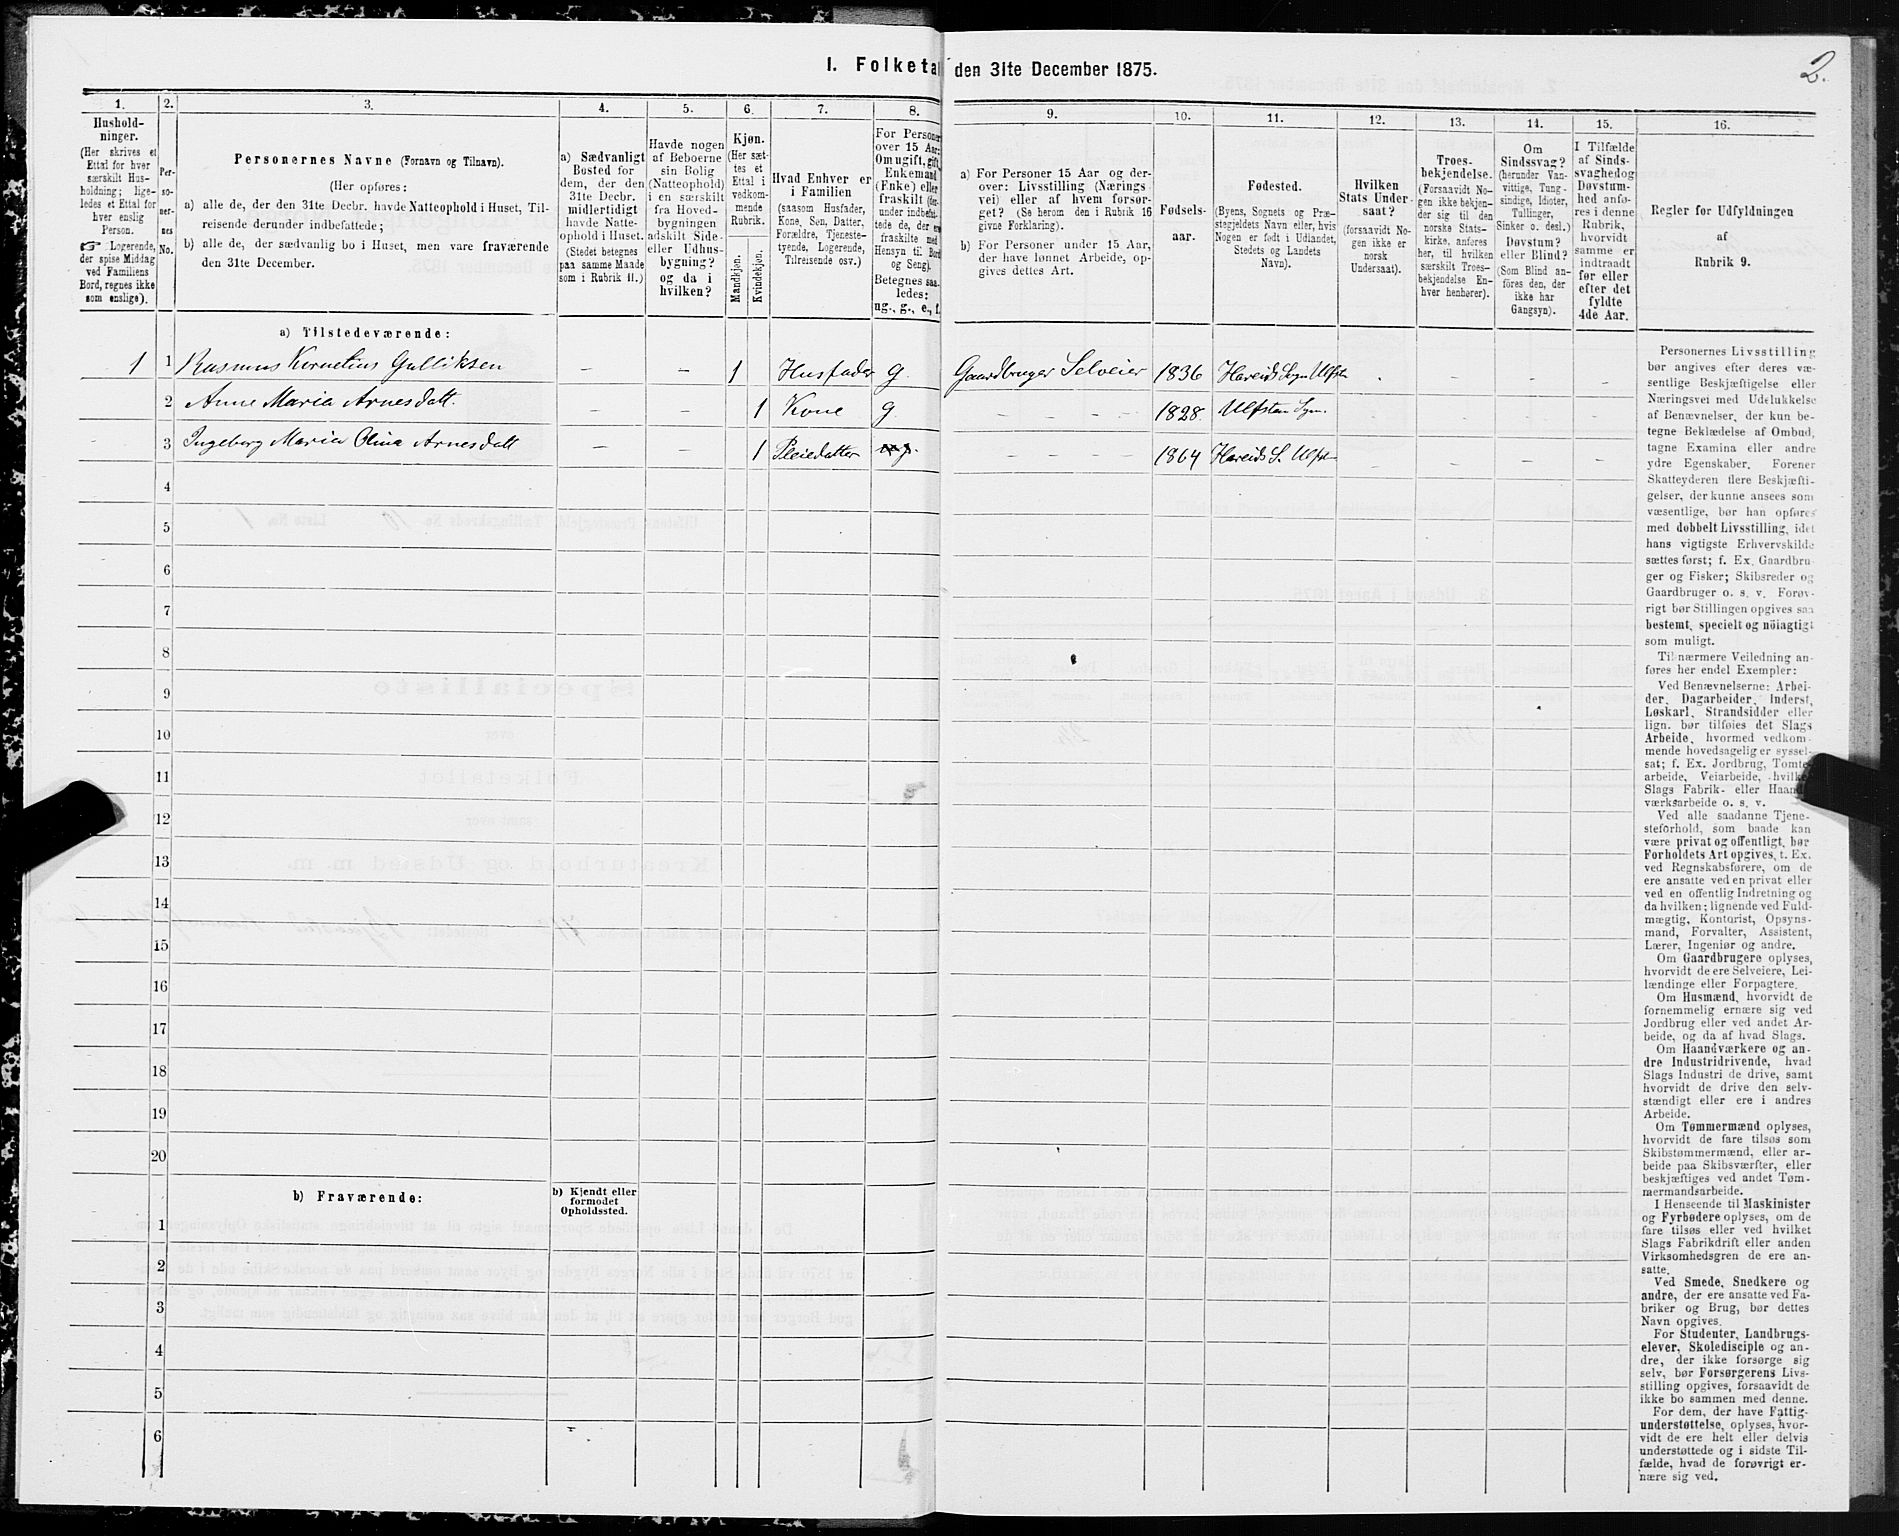 I. Folketal den 31te December 1875.
2.
1.
Hushold-
ninger.
(Her skrives et
Ettal for hver
særskilt Hus-
holdning; lige-
ledes et Ettal for
hver enslig
Person.
☞ Logerende,
der spise Middag
ved Familiens
Bord, regnes ikke
som enslige).
2.
Per-
so-
ner-
nes
No.
3.
Personernes Navne (Fornavn og Tilnavn).
(Her opføres:
a) alle de, der den 31te Decbr. havde Natteophold i Huset, Til-
reisende derunder indbefattede;
b) alle de, der sædvanlig bo i Huset, men vare fraværende
den 31te December.
4.
a) Sædvanligt
Bosted for
dem, der den
31te Decbr.
midlertidigt
havde Natte-
ophold i Huset.
(Stedet betegnes
paa samme Maade
som i Rubrik 11.)
5.
Havde nogen
af Beboerne
sin Bolig
(Natteophold)
i en særskilt
fra Hoved-
bygningen
adskilt Side-
eller Udhus-
bygning?
og da i
hvilken?
6.
Kjøn.
(Her sæt-
tes et
Ettal i
vedkom-
mende
Rubrik.
Mandkjøn.
Kvindekjøn.
7.
Hvad Enhver er
i Familien
(saasom Husfader,
Kone, Søn, Datter,
Forældre, Tjeneste-
tyende, Logerende,
Tilreisende osv.)
8.
For Personer
over 15 Aar:
Om ugift, gift,
Enkemand
(Enke) eller
fraskilt (for-
under indbefat-
tede de, der ere
fraskilte med
Hensyn til Bord
og Seng).
Betegnes saa-
ledes:
ug., g., e., f.
9.
a) For Personer 15 Aar og der-
over: Livsstilling (Nærings-
vei) eller af hvem forsør-
get? (Se herom den i Rubrik 16
givne Forklaring).
b) For Personer under 15 Aar,
der have lønnet Arbeide, op-
gives dettes Art.
10.
Fødsels-
aar.
11.
Fødested.
(Byens, Sognets og Præ-
stegjeldets Navn eller, hvis
Nogen er født i Udlandet,
Stedets og Landets
Navn).
12.
Hvilken
Stats Under-
saat?
(forsaavidt No-
gen ikke er
norsk
Undersaat).
13.
Troes-
bekjendelse.
(Forsaavidt No-
gen ikke bekjen-
der sig til den
norske Stats-
kirke, anføres
her, til hvilken
særskilt Troes-
bekjendelse En-
hver henhører).
14.
Om
Sindssvag?
(herunder Van-
vittige, Tung-
sindige, Idioter,
Tullinger,
Sinker o. desl.)
Døvstum?
eller Blind?
(Som Blind an-
føres den, der
ikke har
Gangsyn).
15.
I Tilfælde
af Sinds-
svaghed og
Døvstum-
hed anfø-
res i denne
Rubrik,
hvorvidt
samme er
indtraadt
før eller
efter det
fyldte
4de Aar.
16.
Regler for Udfyldningen
af
Rubrik 9.
a) Tilstedeværende:
1 1 Rasmus Kornelius Gulliksen – – 1 Husfader g. Gaardbruger Selveier 1836 Hareids Sogn Ulfste - - - -
2 Anne Maria Arnesdatt. – – 1 Kone g – – – – 1828. Ulfsten Sgn. – – – –
3 Ingeborg Maria Olina Arnesdatt – – 1 Pleiedatter ug. – – – – 1864 Hareids S. Ulfst – – – –
4
5
6
7
8
9
10
11
12
13
14
15
16
17
18
19
20
b) Fraværende:
b) Kjendt eller
formodet
Opholdssted.
1
2
3
4
5
6
Personernes Livsstilling
bør angives efter deres væ-
sentlige Beskjæftigelse eller
Næringsvei med Udelukkelse
af Benævnelser, der kun be-
tegne Beklædelse af Ombud,
tagne Examina eller andre
ydre Egenskaber. Forener
Skatteyderen flere Beskjæfti-
gelser, der kunne ansees som
væsentlige, bør han opføres
med dobbelt Livsstilling, idet
hans vigtigste Erhvervskilde
sættes først; f. Ex. Gaardbru-
ger og Fisker; Skibsreder og
Gaardbruger o. s. v. Forøv-
rigt bør Stillingen opgives saa
bestemt, specielt og nöiagtigt
som muligt.
Til nærmere Veiledning an-
føres her endel Exempler:
Ved Benævnelserne: Arbei-
der, Dagarbeider, Inderst,
Løskarl, Strandsidder eller
lign. bør tilføies det Slags
Arbeide, hvormed vedkom-
mende hovedsagelig er syssel-
sat; f. Ex. Jordbrug, Tomte-
arbeide, Veiarbeide, hvilket
Slags Fabrik- eller Haand-
værksarbeide o. s. v.
Ved alle saadanne Tjene-
steforhold, som baade kan
være privat og offentligt, bør
Forholdets Art opgives, t. Ex.
ved Regnskabsførere, om de
ere ansatte ved en privat eller
ved en offentlig Indretning og
da hvilken; lignende ved Fuld-
mægtig, Kontorist, Opsyns-
mand, Forvalter, Assistent,
Lærer, Ingeniør og andre.
Om Gaardbrugere oplyses,
hvorvidt de ere Selveiere, Lei-
lændinge eller Forpagtere.
Om Husmænd, hvorvidt de
fornemmelig ernære sig ved
Jordbrug eller ved andet Ar-
beide, og da af hvad Slags.
Om Haandværkere og an-
dre Industridrivende, hvad
Slags Industri de drive, samt
hvorvidt de drive den selv-
stændigt eller ere i andres
Arbeide.
Om Tømmermænd oplyses,
hvorvidt de fare tilsøs som
Skibstømmermænd, eller ar-
beide paa Skibsværfter, eller
beskjæftiges ved andet Tøm-
mermandsarbeide.
I Henseende til Maskinister
og Fyrbødere oplyses, om de
fare tilsøs eller ved hvilket
Slags Fabrikdrift eller anden
Virksomhedsgren de ere an-
satte.
Ved Smede, Snedkere og
andre, der ere ansatte ved Fa-
briker og Brug, bør dettes
Navn opgives.
For Studenter, Landbrugs-
elever, Skoledisciple og an-
dre, der ikke forsørge sig
selv, bør Forsørgerens Livs-
stilling opgives, forsaavidt de
ikke bo sammen med denne.
For dem, der have Fattig-
understøttelse, oplyses, hvor-
vidt de ere helt eller delvis
understøttede og i sidste Til-
fælde, hvad de forøvrigt er-
nære sig ved.